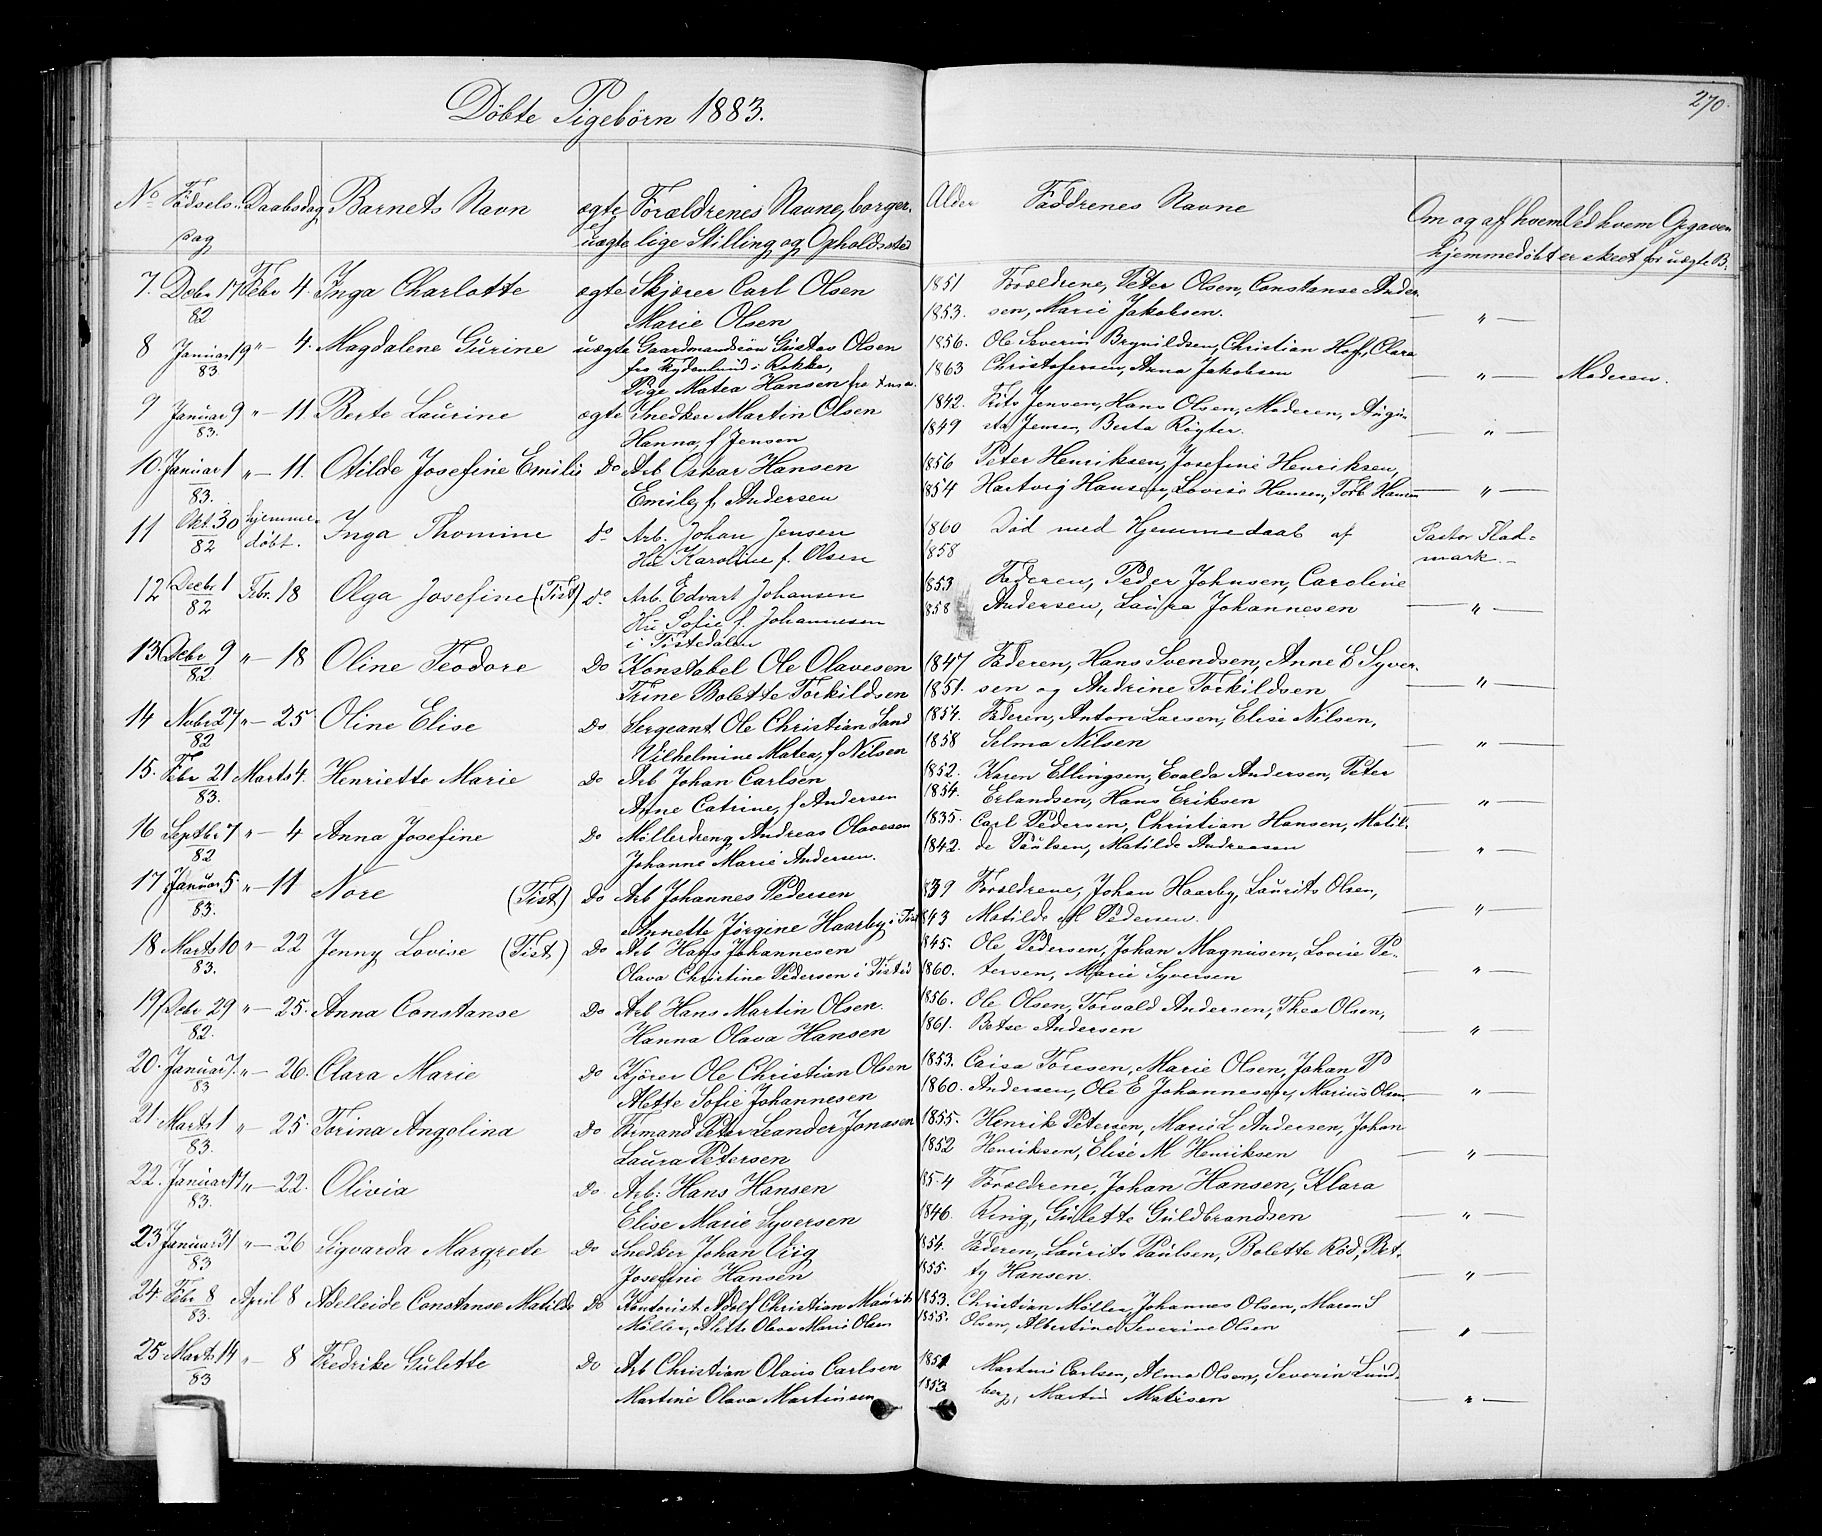 Döbte Pigebörn 1883.
270.
No Födsels Daabsdag Barnets Navn ægte Forældrenes Navne, borger- Alder Faddrenes Navne Om og af hvem Ved hvem Opgaven
Dag uægte lige Stilling og Opholdssted hjemmedöbt er skeet for uægte B.
7. Debr 17 Febr 4. Inga Charlotte ægte Skjörer Carl Olsen 1851 Forældrene, Peter Olsen, Constanse Ander-
82 Marie Olsen 1853. sen, Marie Jakobsen. — " —
8 Januar 19 " — 4. Magdalene Gurine uægte Gaardmandssön Gustav Olsen 1856. Ole Severin Brynildsen, Christian Hoff, Clara
83 fra Frydenlund i Rokke,
Pige Matea Hansen fra 1863 Christofersen, Anna Jakobsen — " — Moderen.
9 Januar 9 " — 11. Berte Laurine ægte Snedker Martin Olsen 1842. Frits Jensen, Hans Olsen, Moderen, Augu-
83. Hanna, f Jensen 1849 sta Jensen, Berta Röyter. — " —
10. Januar 1 " — 11. Otilde Josefine Emilie Do Arb Oskar Hansen 1856 Peter Henriksen, Josefine Henriksen,
83. Emilie, f. Andersen 1854 Hartvig Hansen, Lovise Hansen, Torb Hansen — " —
11 Okt. 30 hjemme- Inga Thomine Do Arb. Johan Jensen 1860 Död med Hjemmedaab af Pastor Flad-
82 döbt. Hu Karoline f. Olsen 1858 mark. —
12 Decbr 1 Febr. 18 Olga Josefine (Tist) Do Arb. Edvart Johansen 1853 Faderen, Peder Johnsen, Caroline
82 Hu Sofie f. Johannesen 1858 Andersen, Laura Johannesen — " —
i Tistedalen
13 Debr 9 " — 18 Oline Teodore Do Konstabel Ole Olavesen 1847 Faderen, Hans Svendsen, Anne E Syver-
82 Trine Bolette Torkildsen 1851. sen og Andrine Torkildsen — " —
14 Nobr 27 " — 25 Oline Elise Do Sergeant Ole Christian Sand 1854. Faderen, Anton Larsen, Elise Nilsen,
82 Vilhelmine Matea, f Nilsen 1858 Selma Nilsen — " —
15. Febr 21 Marts 4. Henriette Marie Do Arb Johan Carlsen 1852. Karen Ellingsen, Evalda Andersen, Peter
83. Anne Catrine, f Andersen 1854. Erlandsen, Hans Eriksen — " —
16 Septbr 7 " — 4 Anna Josefine Do Möllerdreng Andreas Olavesen 1835. Carl Pedersen, Christian Hansen, Matil-
82 Johanne Marie Andersen. 1842. de Paulsen, Matilde Andreasen — " —
17 Januar 5 " — 11 Nore (Tist) Do Arb Johannes Pedersen 1839 Forældrene, Johan Haarby, Laurits Olsen,
83. Annette Jörgine Haarby, i Tist 1843 Matilde M Pedersen. — " —
18 Marts 10 " — 22 Jenny Lovise (Tist) Do Arb Hans Johannesen 1845. Ole Pedersen, Johan Magnusen, Lovise Pe-
83. Olava Christine Pedersen i Tisted 1860. dersen, Marie Syversen "
19 Debr 29 " — 25. Anna Constanse Do Arb Hans Martin Olsen. 1856. Ole Olsen, Torvald Andersen, Thea Olsen,
82. Hanna Olava Hansen 1861. Betse Andersen — " —
20. Januar 7. " — 26. Clara Marie Do Kjörer Ole Christian Olsen 1853. Caisa Toresen, Marie Olsen, Johan P
83 Alette Sofie Johannesen 1860. Andersen, Ole E Johannesen, Marius Olsen — " —
21 Marts 1 " — 25. Torina Angolina Do Formand Peter Leander Jonasen 1855. Henrik Petersen, Marie L Andersen, Johan
83. Laura Petersen 1852 Henriksen, Elise M Henriksen — " —
22. Januar 17 " — 22. Olivia Do. Arb: Hans Hansen 1854 Forældrene, Johan Hansen, Klara
83. Elise Marie Syversen 1846. Ring, Gulette Guldbrandsen — " —
23 Januar 31 " — 26 Sigvarda Margrete Do Snedker Johan Viig 1854. Faderen, Laurits Paulsen, Bolette Röd, Bet-
83 Josefine Hansen 1855. ty Hansen. — " —
24. Febr 8 April 8 Adelleide Constanse Matilde Do Kontorist Adolf Christian Maurits 1853. Christian Möller, Johannes Olsen, Maren S
83. Möller, Alette Olava Marie Olsen 1855. Olsen, Albertine Severine Olsen — " —
25 Marts 14 " — 8 Fredrike Gulette Do Arb Christian Olaus Carlsen 1851 Martine Carlsen, Alma Olsen, Severin Lund-
83 Martine Olava Martinsen 1853 berg, Martin Matisen — " —